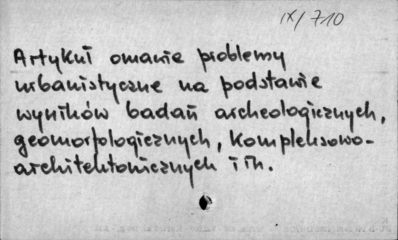 IX/710
Artykuł omawia problemy
urbanistyczne na podstawie
wyników badań archeologicznych,
geomorfologicznych, kompleksowo-
architektonicznych i in.